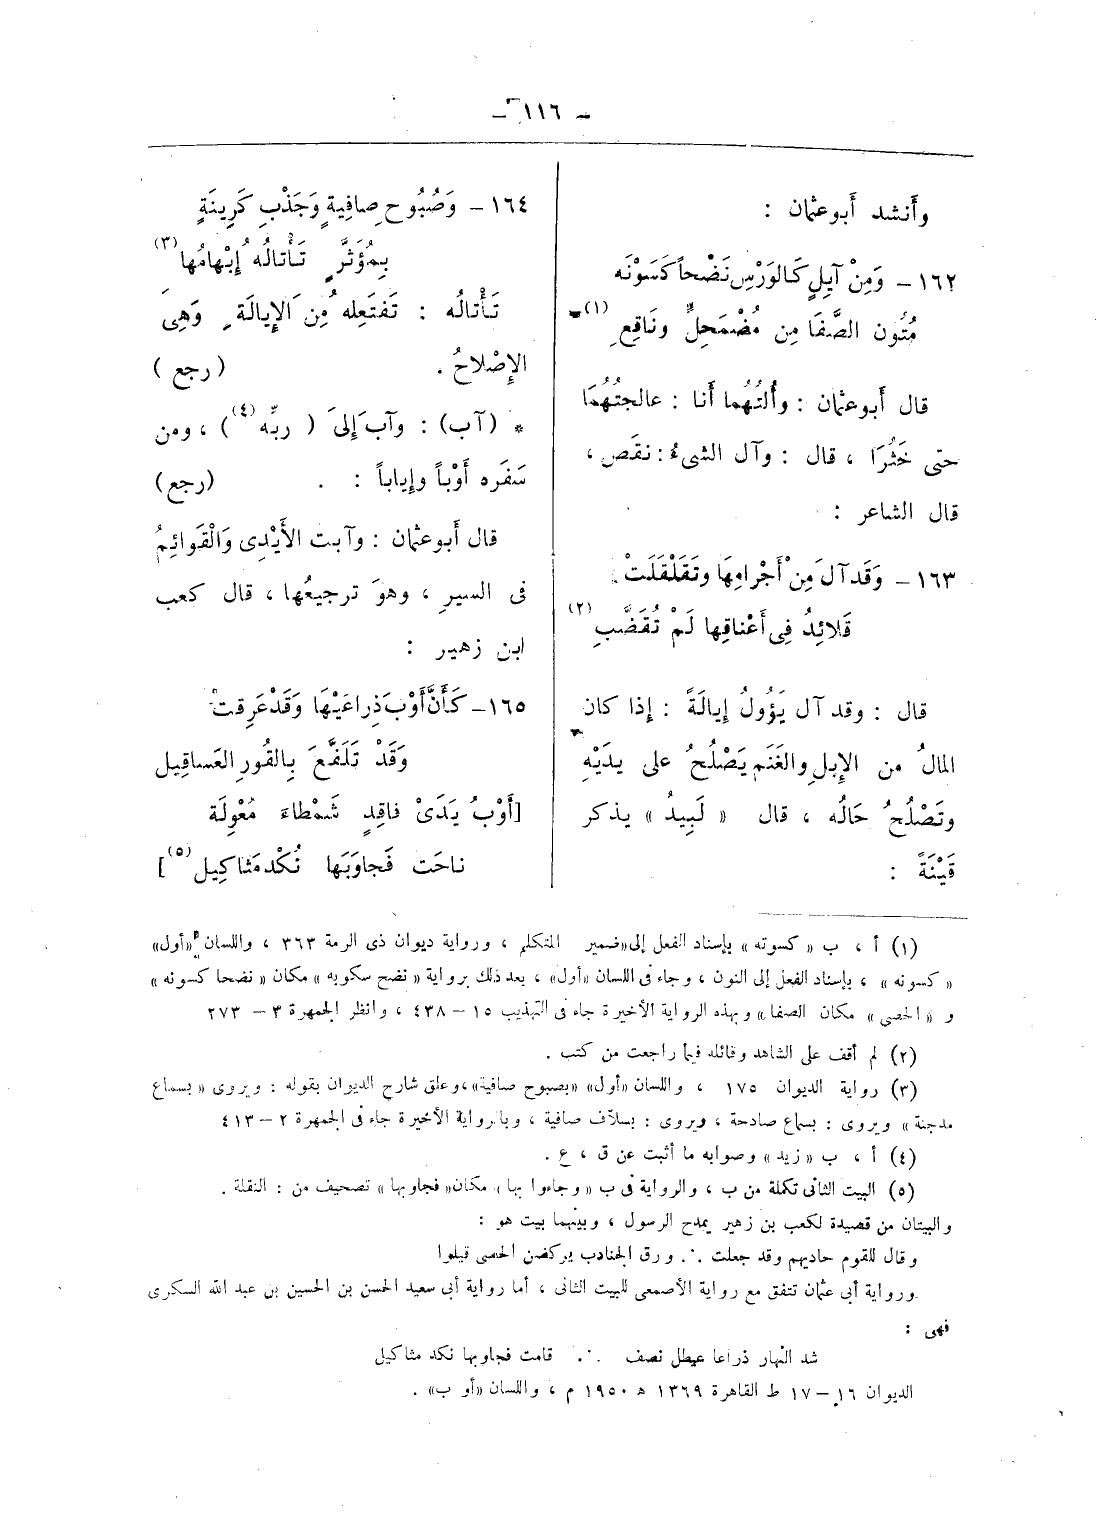 – ١١٦ –
وأَنشد أَبو عثمان :
١٦٢ – وَمِنْ آيِلٍ كَالوَرْسِ نَضْحاً كَسَوْنَه
مُتُون الصَّفَا مِن مُضْمَحِلٍّ ونَاقِعِ (١)
قال أَبو عثمان : وأُلتُهُما أَنا : عالجتُهُمَا
حتى خَثُرَا ، قال : وآل الشىءُ : نقَص ،
قال الشاعر :
١٦٣ – وَقَد آلَ مِنْ أَجْرامِهَا وتَقَلْقَلَتْ
قَلائِدُ فِى أَعْناقِها لَمْ تُقَضَّبِ (٢)
قال : وقد آل يَؤُولُ إِيالَةً : إِذا كان
المالُ من الإِبلِ والغَنَمِ يَصْلُحُ على يديْهِ
وتَصْلُحُ حَالُه ، قال « لَبِيدُ » يذكر
قَيْنَةً :
١٦٤ – وَصَبُوحِ صافِيةٍ وَجَذْبِ كَرِينَةٍ
بِمُؤَثَّرٍ تَأْتالُه إِبْهامُها (٣)
تَأْتالُه : تَفتَعِله مِنَ الإِيالَةِ ، وَهِىَ
الإِصْلاحُ . ( رجع )
* (آب) : وآبَ إِلىَ ( ربِّه (٤) ) ، ومن
سَفَره أَوْباً وإِياباً : . (رجع)
قال أَبو عثمان : وآبت الأَيْدِى وَالْقَوائِمُ
فى السيرِ ، وهوَ ترجيعُها ، قال كعب
ابن زهير :
١٦٥ – كَأَنَّ أَوْبَ ذِراعَيْهَا وَقَدْ عَرِقتْ
وَقَدْ تَلَفَّعَ بِالقُورِ العَساقِيل
[أَوْبُ يَدَىْ فاقِدٍ شَمْطاءَ مُعْوِلَة
ناحَت فَجاوَبَها نُكْد مَثاكِيل (٥) ]
(١) أ ، ب « كسوته » بإسناد الفعل إلى «ضمير المتكلم ، ورواية ديوان ذى الرمة ٣٦٣ ، واللسان «أول»
« كسونه » ، بإسناد الفعل إلى النون ، وجاء فى اللسان «أول» ، بعد ذلك برواية « نضح سكوبه » مكان « نضحا كسونه »
و « الحصى » مكان الصفا» وبهذه الرواية الأخيرة جاء فى التهذيب ١٥ – ٤٣٨ ، وانظر الجمهرة ٣ – ٢٧٣
(٢) لم أقف على الشاهد وقائله فيما راجعت من كتب .
(٣) رواية الديوان ١٧٥ ، واللسان «أول» «بصبوح صافية» ، وعلق شارح الديوان بقوله : ويروى « بسماع
مدجنة » ويروى : بسماع صادحة ، ويروى : بسلاف صافية ، وبالرواية الأخيرة جاء فى الجمهرة ٢ – ٤١٣
(٤) أ ، ب « زيد » وصوابه ما أثبت عن ق ، ع .
(٥) البيت الثانى تكملة من ب ، والرواية فى ب « وجاءوا بها » مكان « فجاوبها » تصحيف من : النقلة .
والبيتان من قصيدة لكعب بن زهير يمدح الرسول ، وبينهما بيت هو :
وقال للقوم حاديهم وقد جعلت ∴ ورق الجنادب يركضن الحصى قيلوا
ورواية أبى عثمان تتفق مع رواية الأصمعى للبيت الثانى ، أما رواية أبى سعيد الحسن بن الحسين بن عبد الله السكرى
فهى :
شد النهار ذراعا عيطل نصف ∴ قامت فجاوبها نكد مثاكيل
الديوان ١٦ – ١٧ ط القاهرة ١٣٦٩ ه ١٩٥٠ م ، واللسان «أوب» .